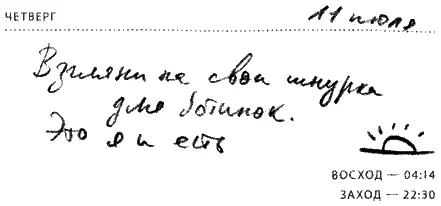 ЧЕТВЕРГ 11 июля
Взгляни на свои шнурка
для ботинок.
Это я и есть
ВОСХОД — 04:14
ЗАХОД — 22:30